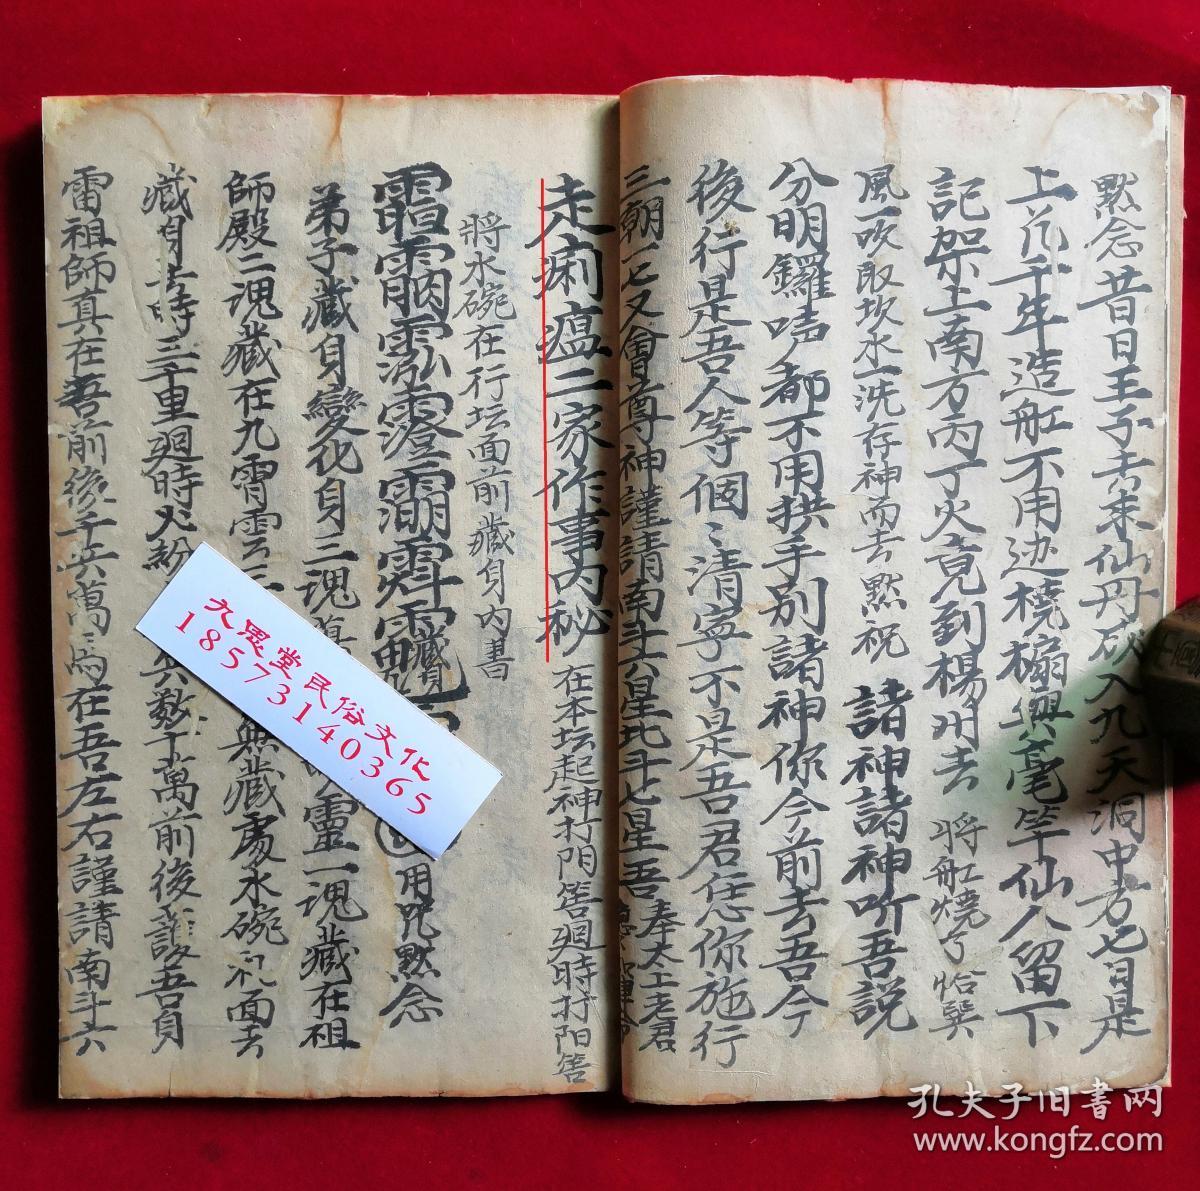 默念昔日王子去来仙丹成入九天洞中方七日是
上萢千年造舡不用边橈櫋與毫竿仙人留下
記架上南方丙丁火竟到楊州去 將舡燒了恰巽
風一吹取坎水一洗存神而去 默祝 諸神諸神听吾説
分明鑼唔都不用拱手别諸神你今前去吾今
後行是吾人等個〻清寧不是吾君恁你施行
三朝一七又會尊神謹請南斗六星北斗七星吾奉太上老君
走痢瘟二家作事内秘 在本坛起神打阴筶廻時打阳筶
將水碗在行坛面前藏身内書
藏身 用咒默念
弟子藏身變化身三魂 靈一魂藏在祖
師殿二魂藏在九霄雲 無藏處水碗礼面去
藏身去時三千里廻時火紛 六数千萬前後護吾身
雷祖師真在吾前後千兵萬馬在吾左右謹請南斗六
九思堂民俗文化
18573140365
孔夫子旧书网
www.kongfz.com